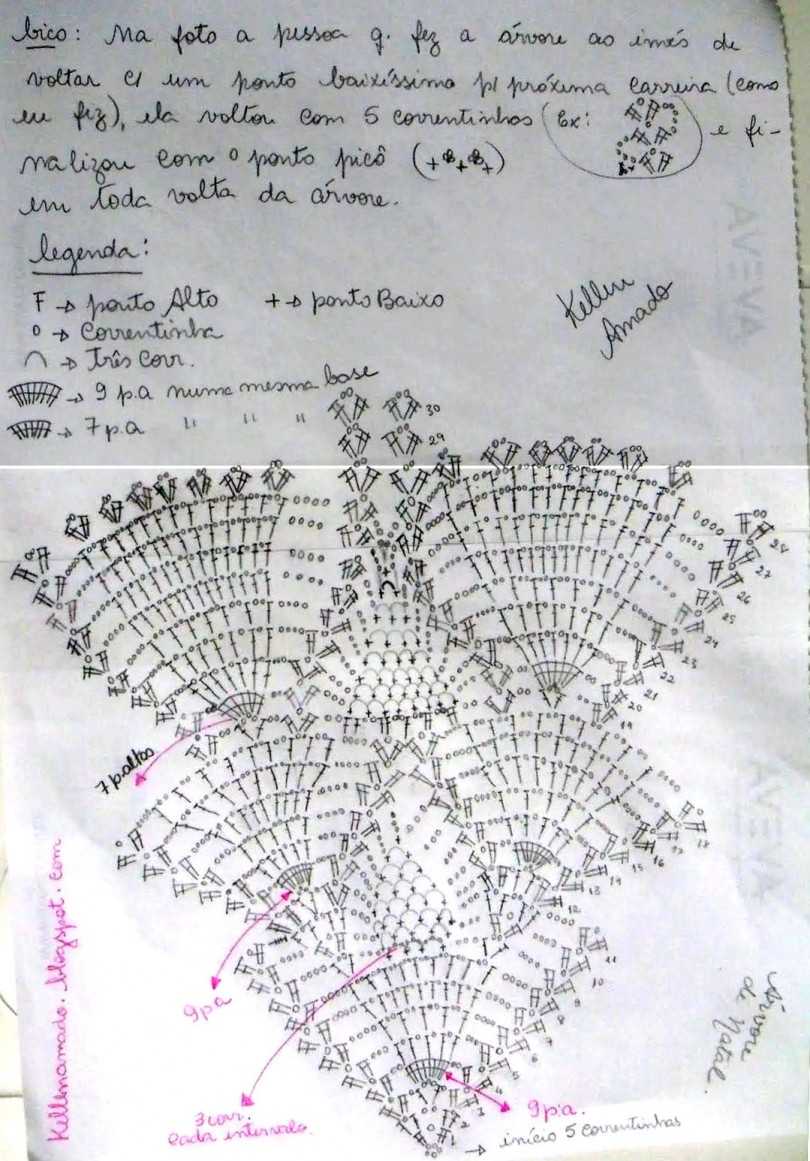 bico: Na foto a pessoa q. fez a árvore ao invés de
voltar c/ um ponto baixíssimo p/ próxima carreira (como
eu fiz), ela voltou com 5 correntinhas (Ex: ) e fi-
nalizou com o ponto picô (+ + +)
em toda volta da árvore.
legenda:
F → ponto Alto + → ponto Baixo
o → Correntinha
⌒ → Três corr.
→ 9 p.a numa mesma base
→ 7 p.a " " "
Kellen
Amado
30
29
28
27
26
25
24
23
22
21
20
19
7 p.altos
18
17
16
15
14
13
12
9pa
11
10
9
8
7
6
5
4
3
2
1
3 corr.
Cada intervalo.
9p.a.
→ início 5 correntinhas
Kellenamado.blogspot.com
Árvore
de Natal
AVEVA
AVEVA